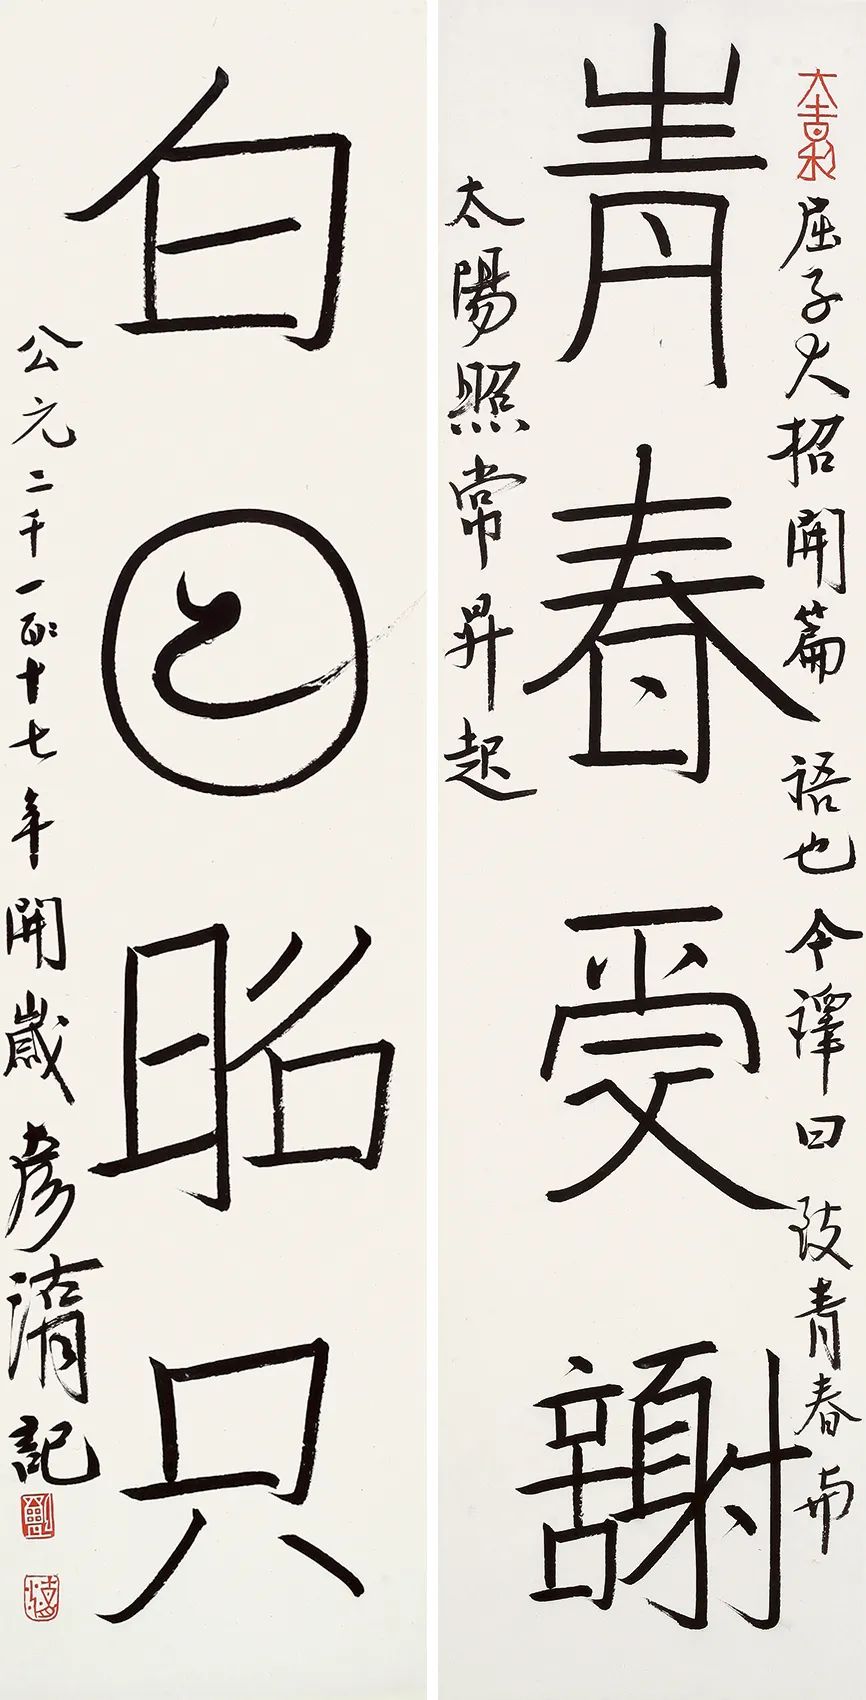 屈子大招開篇語也今譯曰致青春與
青春受謝
太陽照常昇起
白日昭只
公元二千一十七年開歲彥湖記